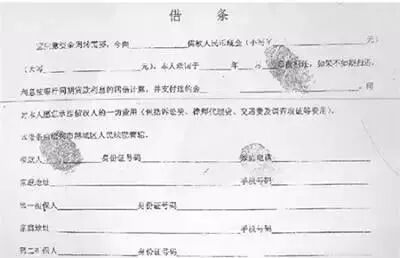 借 条
因 资金周转需要，今向 借取人民币现金（小写￥ 元）
（大写 元），本人承诺于 年 月 日 归还，如果不如期归还，
利息按银行同期贷款利息的四倍计算，并支付违约金 ，同
时本人愿意承担借款人的一切费用（包括诉讼费、律师代理费、交通费及调查取证等费用）。
本借条由 市 城区人民法院管辖。
借款人 身份证号码 电话
家庭地址 手机号码
第一担保人 身份证号码
家庭地址 手机号码
第二担保人 身份证号码